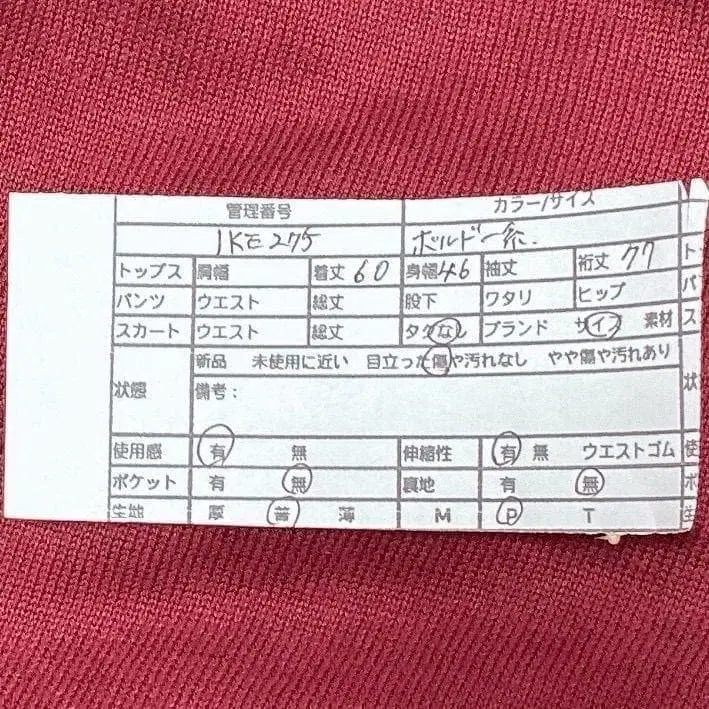 管理番号 カラー/サイズ
IKE275 ボルドー系.
トップス 胸幅 着丈 60 身幅 46 袖丈 裄丈 77 ト
パンツ ウエスト 総丈 股下 ワタリ ヒップ パ
スカート ウエスト 総丈 タグなし ブランド サイズ 素材 ス
新品 未使用に近い 目立った傷や汚れなし やや傷や汚れあり
状態 備考: 状
使用感 有 無 伸縮性 有 無 ウエストゴム 使
ポケット 有 無 裏地 有 無 ポ
生地 厚 普 薄 M P T 生